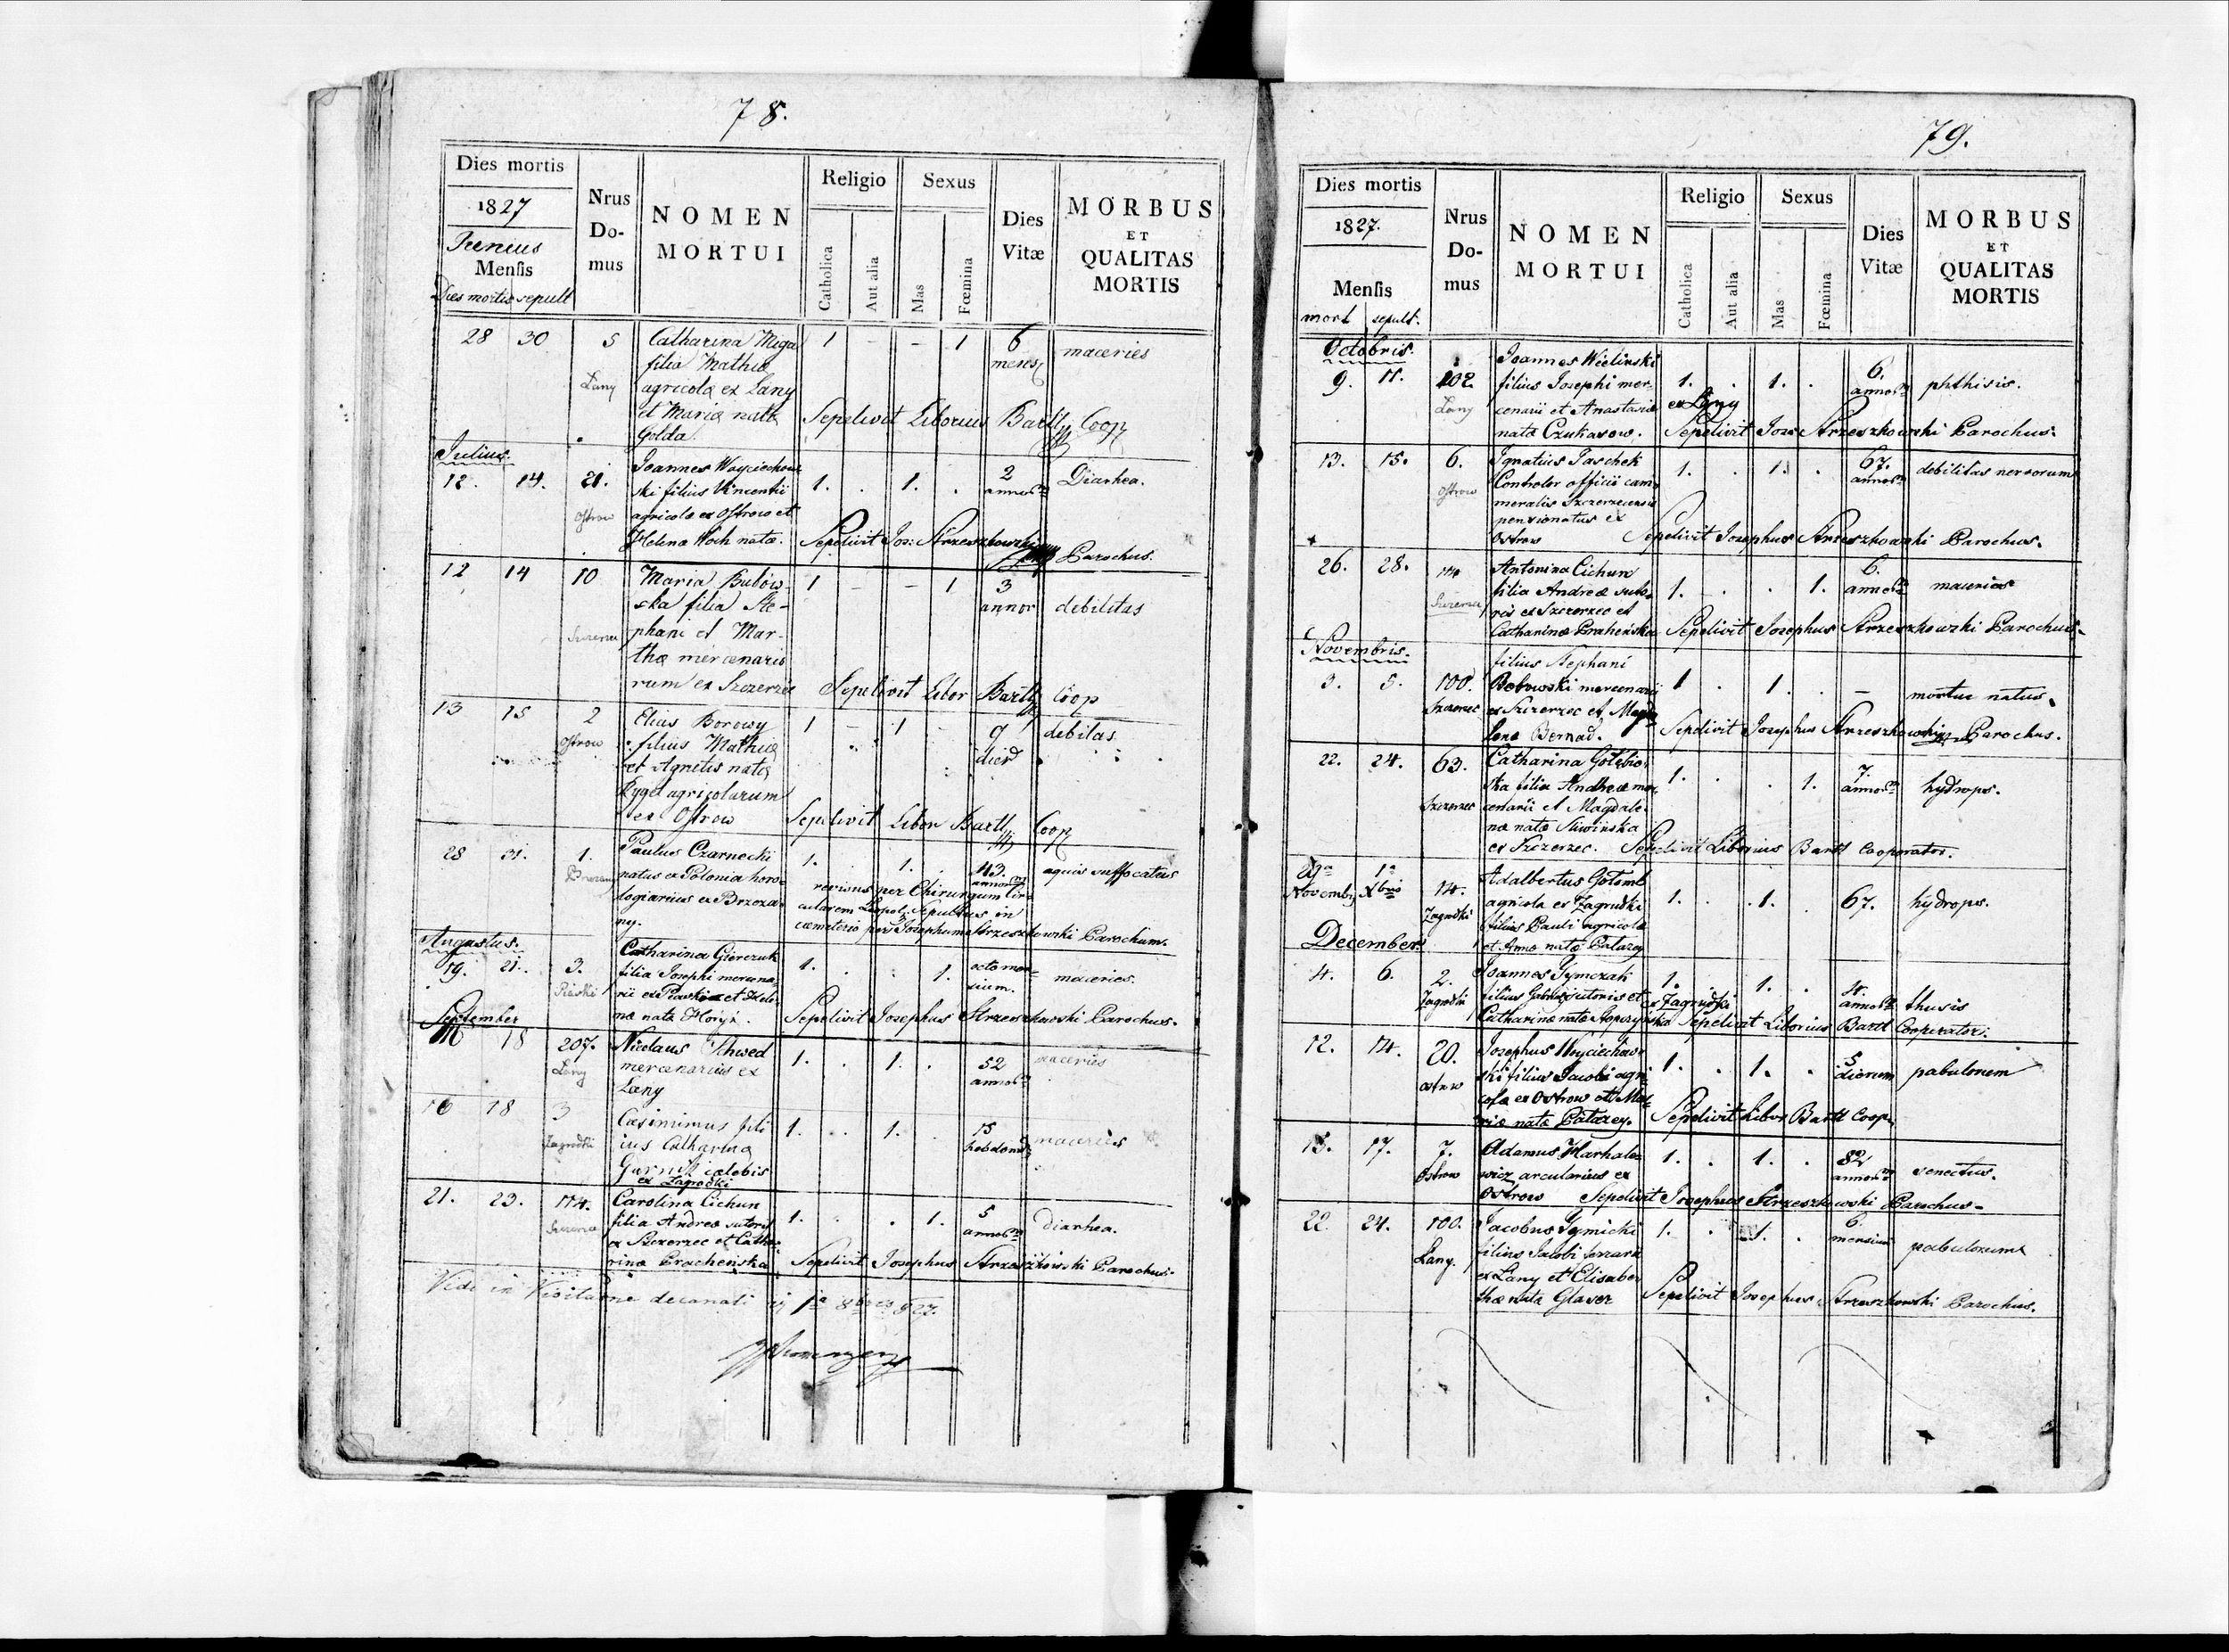 78.
Dies mortis
1827
Junius
Mensis
Dies mortis sepult
Nrus
Do-
mus
NOMEN
MORTUI
Religio
Catholica
Aut alia
Sexus
Mas
Fœmina
Dies
Vitæ
MORBUS
ET
QUALITAS
MORTIS
28 30 5 Catharina Maga 1 - - 1 6 maceries
filia Mathiæ menses
Lany agricolæ ex Lany
et Mariæ natæ Sepelivit Liborius Bartl Coop
Golda.
Julius.
12. 14. 21. Joannes Woyciechow 1. . 1. . 2 Diarhea.
ski filius Vincentii annor
Ostrow agricolæ ex Ostrow et
Helenæ Woch natæ. Sepelivit Jos: Strzeszkowski Parochus.
12 14 10 Maria Bubow- 1 - - 1 3
ska filia Ste- annor debilitas
phani et Mar-
thæ mercenario
rum ex Szczerzec Sepelivit Libor Bartl Coop
13 15 2 Elias Borowy 1 - 1 - 9 debilitas
Ostrow filius Mathiæ dier
et Agnetis natæ
Rygel agricolarum
ex Ostrow Sepelivit Libor Bartl Coop
28 31. 1. Paulus Czarnecki 1. . 1. 43. aquis suffocatus
natus ex Polonia horo- annor
logiarius ex Brzoza- revisus per Chirurgum Cir-
ny. cularem Leopol: Sepultus in
cæmeterio per Josephum Strzeszkowski Parochum.
Augustus.
19. 21. 3. Catharina Gierczuk 1. . . 1. octo men- maceries.
Piaski filia Josephi mercena- sium.
rii ex Piaski et Hele-
næ natæ Sepelivit Josephus Strzeszkowski Parochus.
September
18 207. Nicolaus Shwed 1. . 1. . 52 maceries
Lany mercenarius ex annor
Lany
16 18 3 Casimirus fili 1. . 1. . 15 maceries
Zagrodki ius Catharinæ hebdomad
cælebis
ex Zagrodki
21. 23. 114. Carolina Cichun 1. . . 1. 5 diarhea.
filia Andreæ sutoris annor
ex Szczerzec et Catha-
rinæ Pracheńska Sepelivit Josephus Strzeszkowski Parochus.
Vidi in Visitatione decanali 1a 8bris 827.
79.
Dies mortis
1827.
Mensis
mort sepult.
Nrus
Do-
mus
NOMEN
MORTUI
Religio
Catholica
Aut alia
Sexus
Mas
Fœmina
Dies
Vitæ
MORBUS
ET
QUALITAS
MORTIS
Octobris.
9. 11. 102 Joannes Wielinski 6.
Lany filius Josephi mer- 1. . 1. . annor phthisis.
cenarii et Anastasiæ ex Lany
natæ Czukasow. Sepelivit Jose Strzeszkowski Parochus.
13. 15. 6. Ignatius Paschek 1. . 1. . 67. debilitas nervorum
Ostrow Controlor officii cam- annor
meralis Szczerzecensis
pensionatus ex
Ostrow Sepelivit Josephus Strzeszkowski Parochus.
26. 28. 114 Antonina Cichun 6.
filia Andreæ suto- 1. . . 1. annor maceries
ris ex Szczerzec et
Catharinæ Pracheńska Sepelivit Josephus Strzeszkowski Parochus.
Novembris.
filius Stephani
3. 5. 100. Bobowski mercenarii 1 . 1. . - mortue natus.
Szczerzec ex Szczerzec et Magda-
lenæ Bernad. Sepelivit Josephus Strzeszkowski Parochus.
22. 24. 63. Catharina Gołębio- 1. . . 1. 7.
ska filia Andreæ mer- annor hydrops.
Szczerzec cenarii et Magdale-
næ natæ Sliwińska
ex Szczerzec. Sepelivit Liborius Bartl Cooperator.
29a 1a Adalbertus Gołomb
Novemb Xbris 14. agricola ex Zagrudki 1. . 1. . 67. hydrops.
Zagrudki filius Pauli agricolæ
et Annæ natæ Patazey
December.
4. 6. 2. Joannes Tymczak 1. . 1. . 4.
Zagrodki filius Gabrielis sutoris et ex Zagrudki annor thusis
Catharinæ natæ Sepelivit Liborius Bartl Cooperator.
12. 14. 20. Josephus Woyciechow- 1. . 1. . 5 pabulorum
Ostrow ski filius Jacobi agri- dierum
colæ ex Ostrow et Ma-
riæ natæ Patazey. Sepelivit Libor Bartl Coop.
15. 17. 7. Adamus Marhale- 1. . 1. . 82 senectus.
Ostrow wicz arcularius ex annor
Ostrow Sepelivit Josephus Strzeszkowski Parochus.
22. 24. 100. Jacobus Tymicki 1. . 1. . 6. pabulorum
filius Jacobi mensium
Lany. ex Lany et Elisabe-
thæ natæ Glaser Sepelivit Josephus Strzeszkowski Parochus.